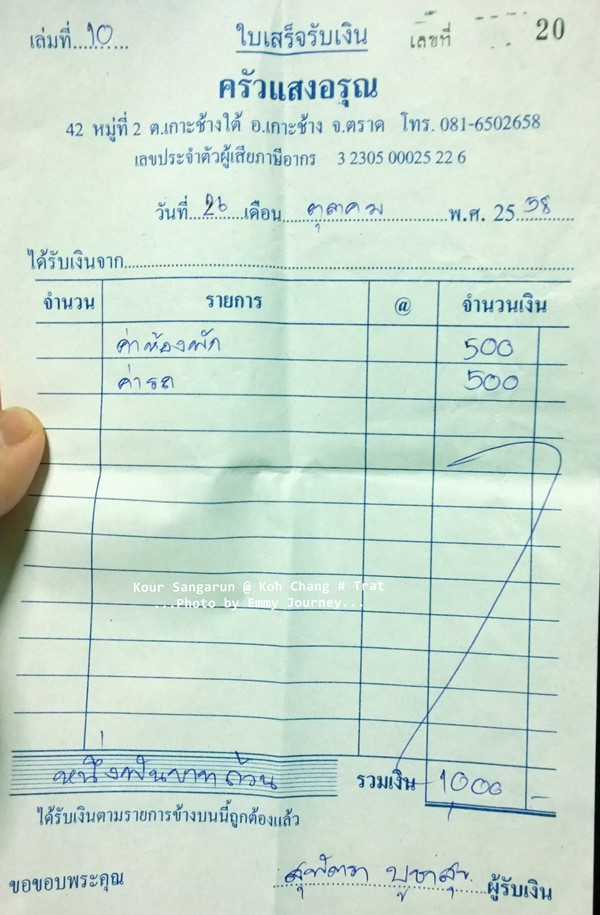 เล่มที่ 10 ใบเสร็จรับเงิน เลขที่ 20
ครัวแสงอรุณ
42 หมู่ที่ 2 ต.เกาะช้างใต้ อ.เกาะช้าง จ.ตราด โทร. 081-6502658
เลขประจำตัวผู้เสียภาษีอากร 3 2305 00025 22 6
วันที่ 26 เดือน ตุลาคม พ.ศ. 2558
ได้รับเงินจาก
จำนวน รายการ @ จำนวนเงิน
ค่าห้องพัก 500
ค่ารถ 500
Kour Sangarun @ Koh Chang # Trat
...Photo by Emmy Journey...
หนึ่งพันบาทถ้วน รวมเงิน 1000 -
ได้รับเงินตามรายการข้างบนนี้ถูกต้องแล้ว
ขอขอบพระคุณ ผู้รับเงิน